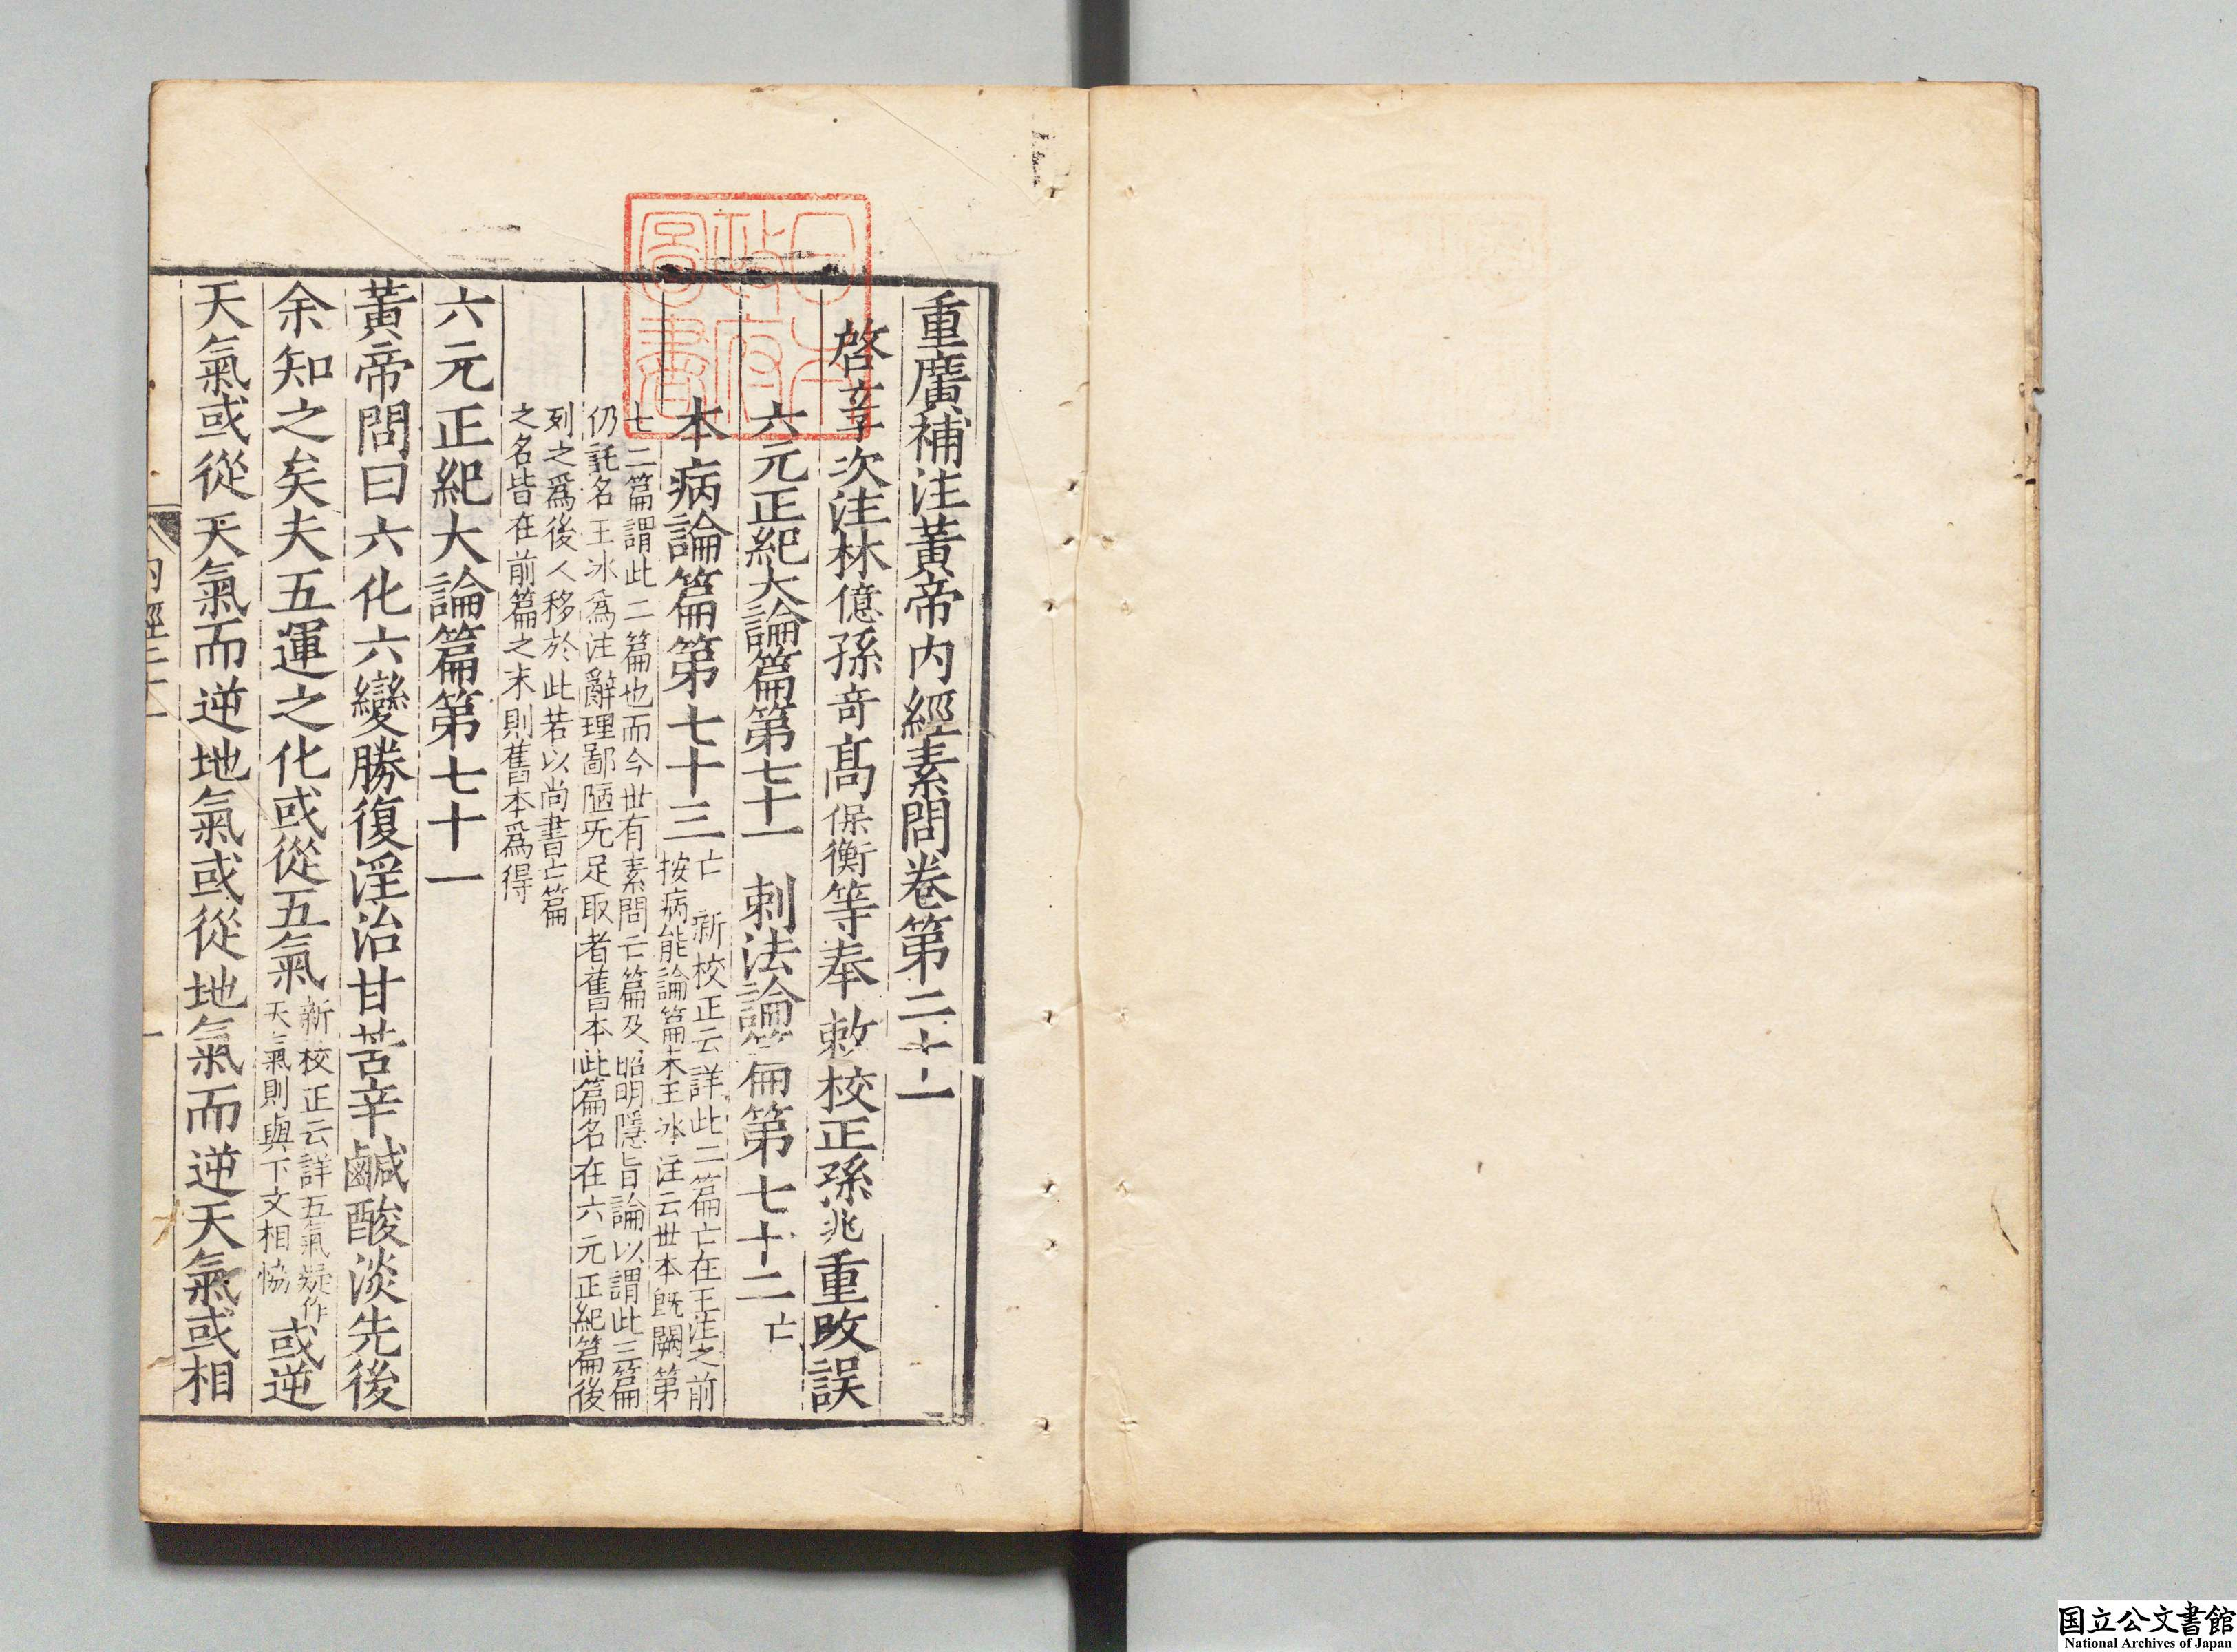 重廣補注黃帝内經素問卷第二十一
啓玄子次注林億孫奇髙保衡等奉敕校正孫兆重改誤
六元正紀大論篇第七十一　刺法論篇第七十二亡
本病論篇第七十三亡　新校正云詳此二篇亡在王注之前
按病能論篇末王冰注云丗本旣闕第
七二篇謂此二篇也而今丗有素問亡篇及昭明隱旨論以謂此三篇
仍託名王冰爲注辭理鄙陋旡足取者舊本此篇名在六元正紀篇後
列之爲後人移於此若以尚書亡篇
之名皆在前篇之末則舊本爲得
六元正紀大論篇第七十一
黃帝問曰六化六變勝復淫治甘苦辛鹹酸淡先後
余知之矣夫五運之化或從五氣新校正云詳五氣疑作
天氣則與下文相恊或逆
天氣或從天氣而逆地氣或從地氣而逆天氣或相
内經二十一
一
日本政府圖書
国立公文書館
National Archives of Japan